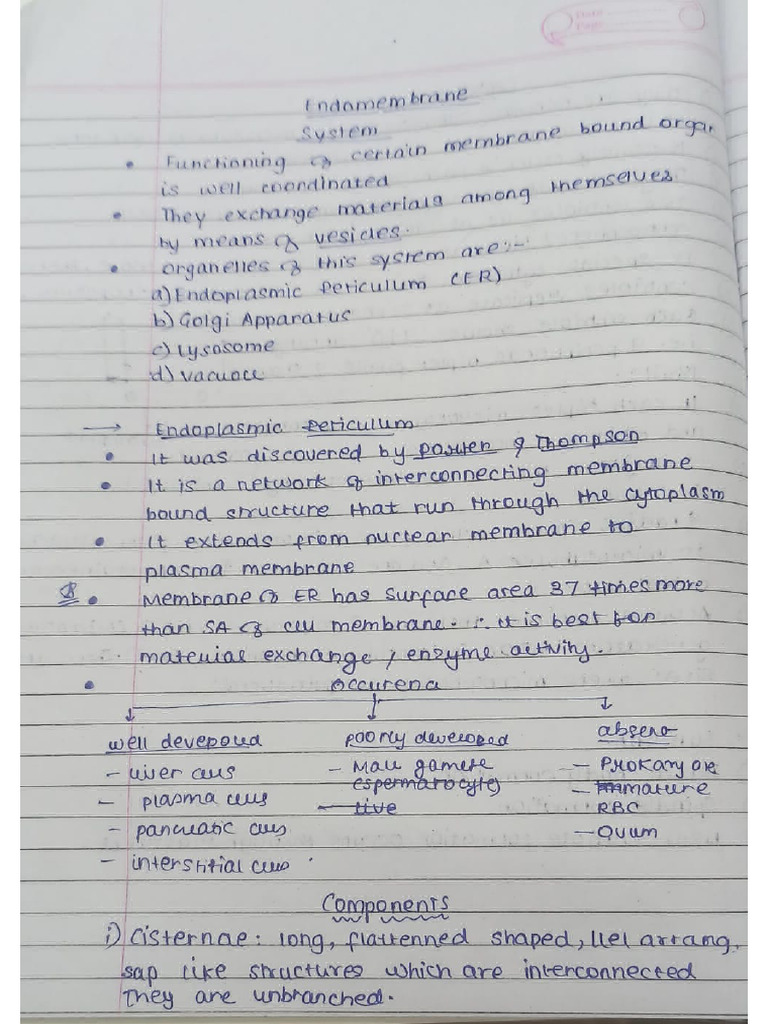 Endomembrane
System
• Functioning of certain membrane bound organ
is well coordinated
• They exchange materials among themselves
by means of vesicles.
• organelles of this system are:-
a) Endoplasmic Reticulum (ER)
b) Golgi Apparatus
c) Lysosome
d) vacuole
→ Endoplasmic Reticulum
• It was discovered by Porter & Thompson
• It is a network of interconnecting membrane
bound structure that run through the cytoplasm
• It extends from nuclear membrane to
plasma membrane
• Membrane of ER has surface area 37 times more
than SA of cell membrane. ∴ it is best for
material exchange, enzyme activity.
• occurena
well developed poorly developed absent
- liver cells - Male gamete - Prokaryote
espermatocytes - mature
- plasma cells RBC
- pancreatic cells - Ovum
- interstitial cells
Components
i) Cisternae: long, flattenned shaped, llel arrang.
sap like structures which are interconnected
They are unbranched.